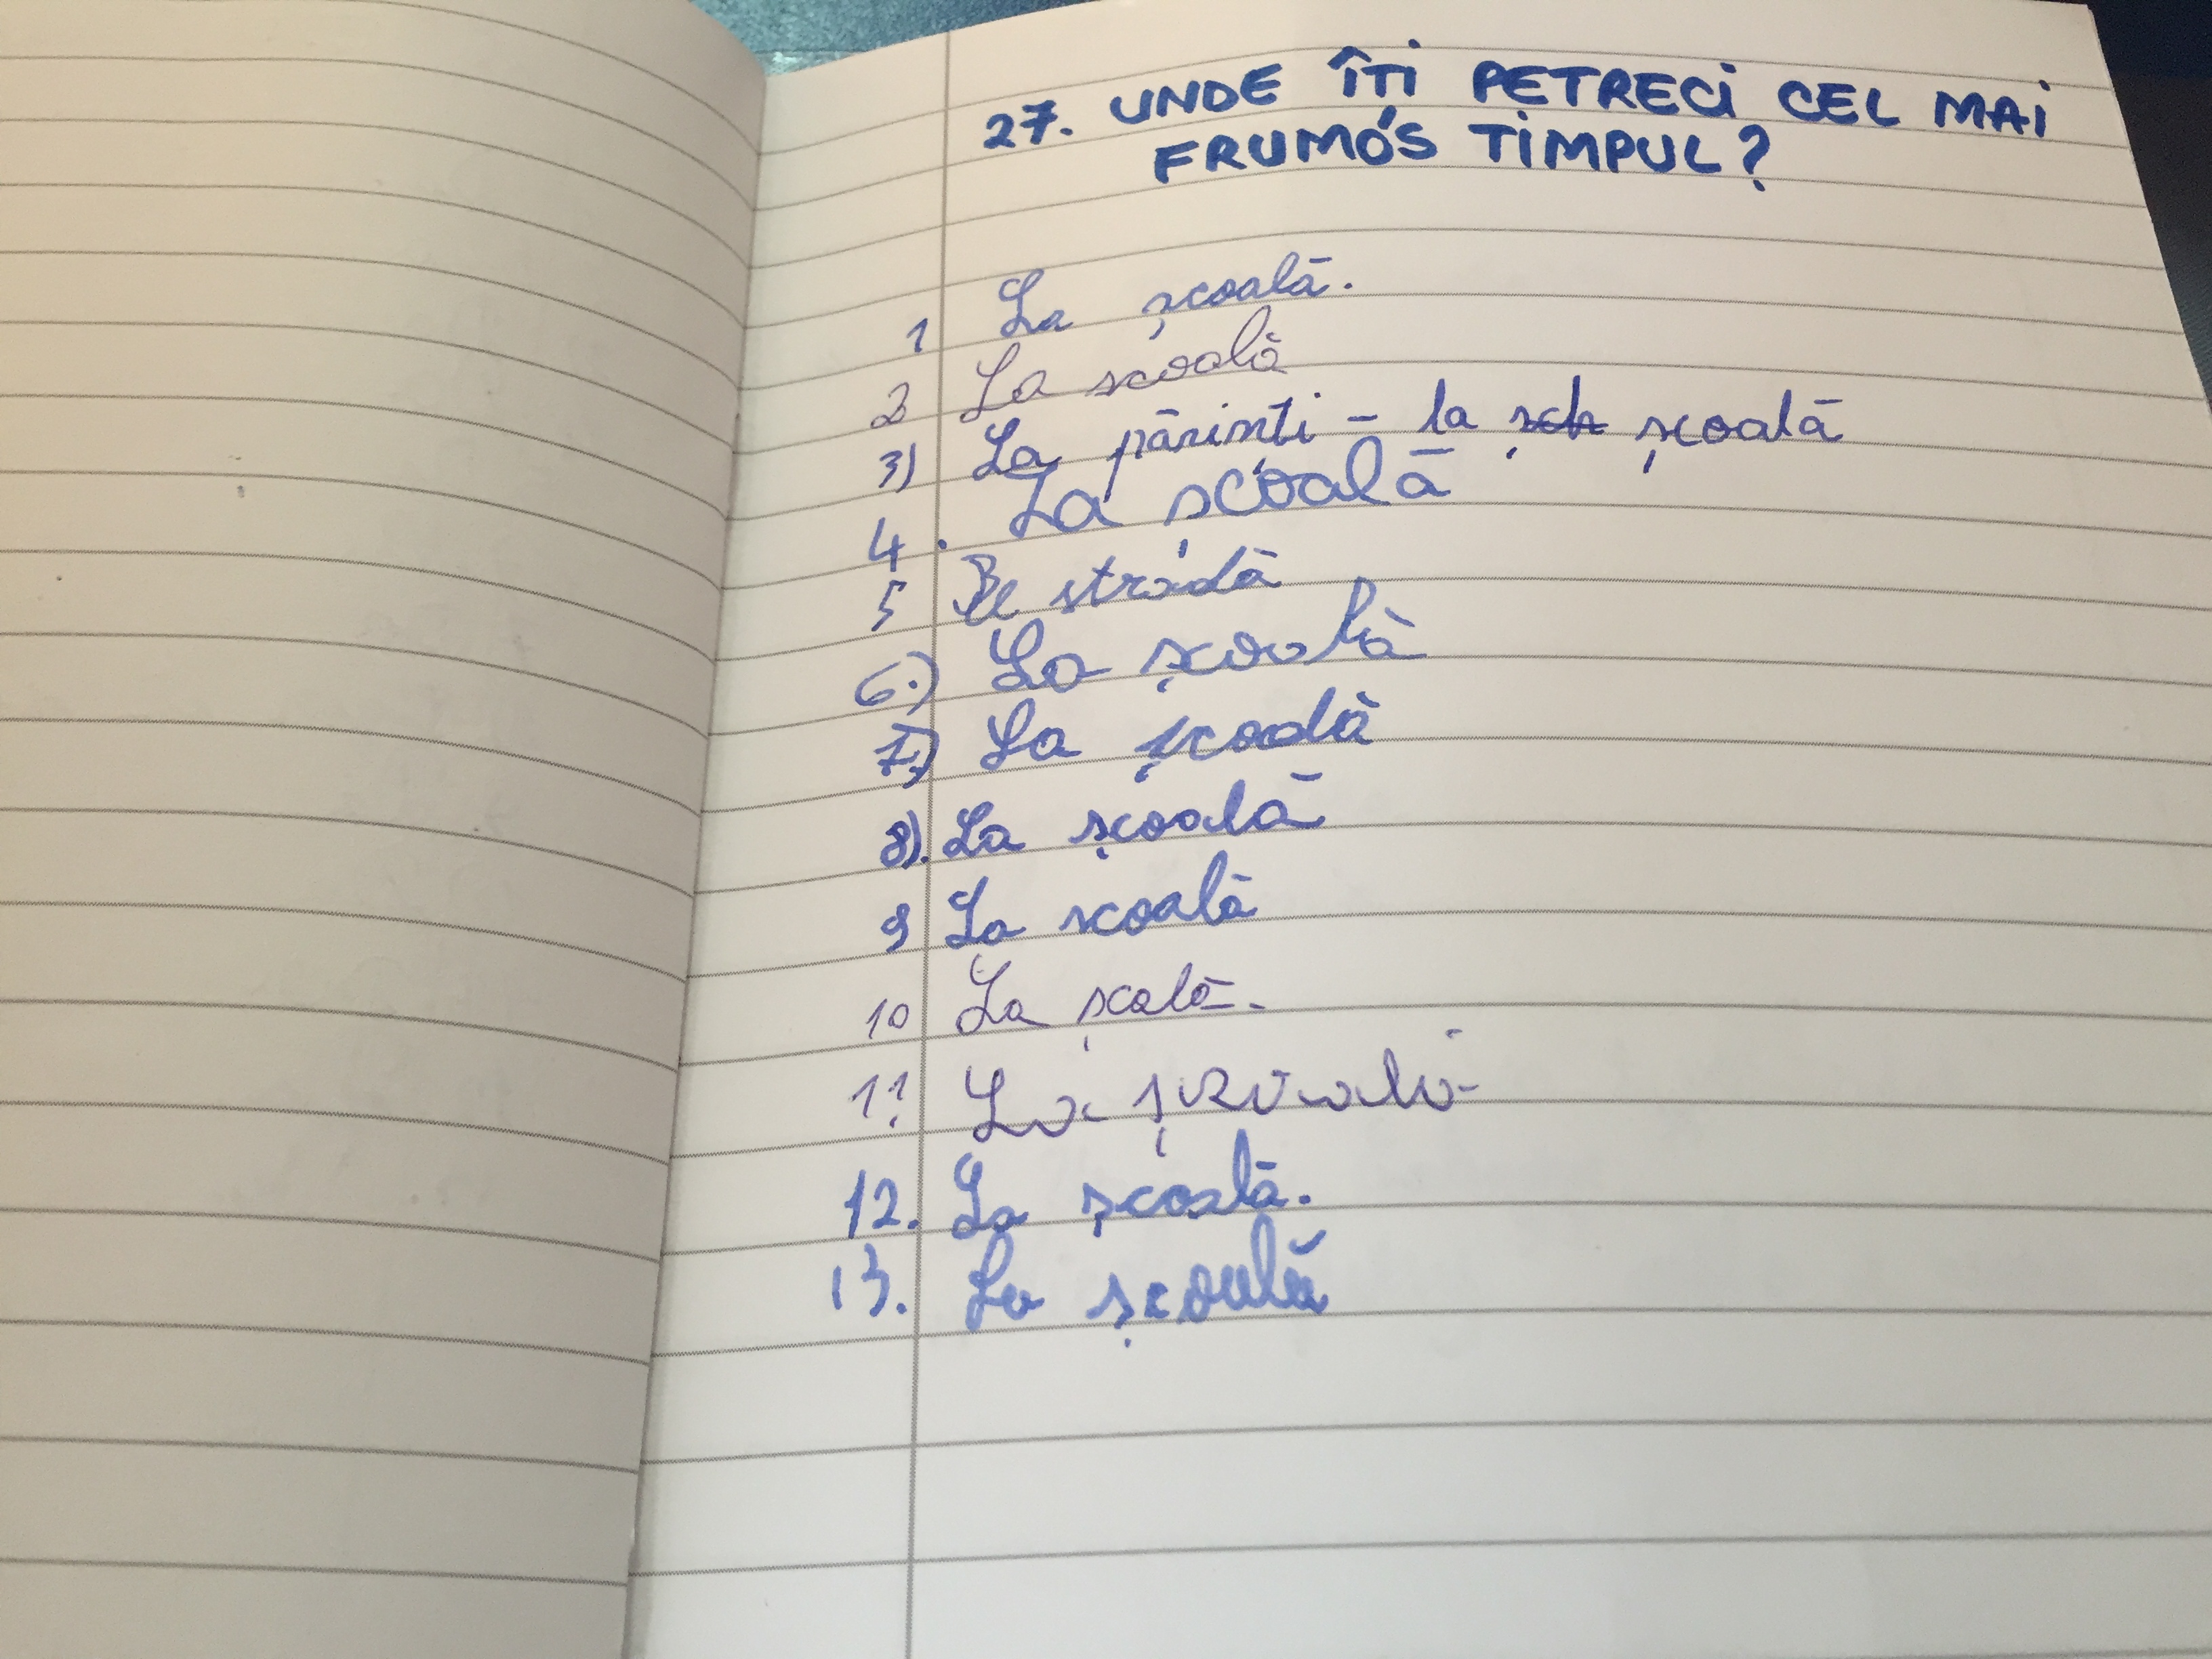 27. UNDE ÎȚI PETRECI CEL MAI
FRUMOS TIMPUL?
1 La școală.
2 La scoală
3) La părinți - la șch școală
4. La școală
5 Pe stradă
6.) La școală
7.) La școală
8). La școală
9 La scoală
10 La șcală.
11 La școală
12. La școală.
13. La școală